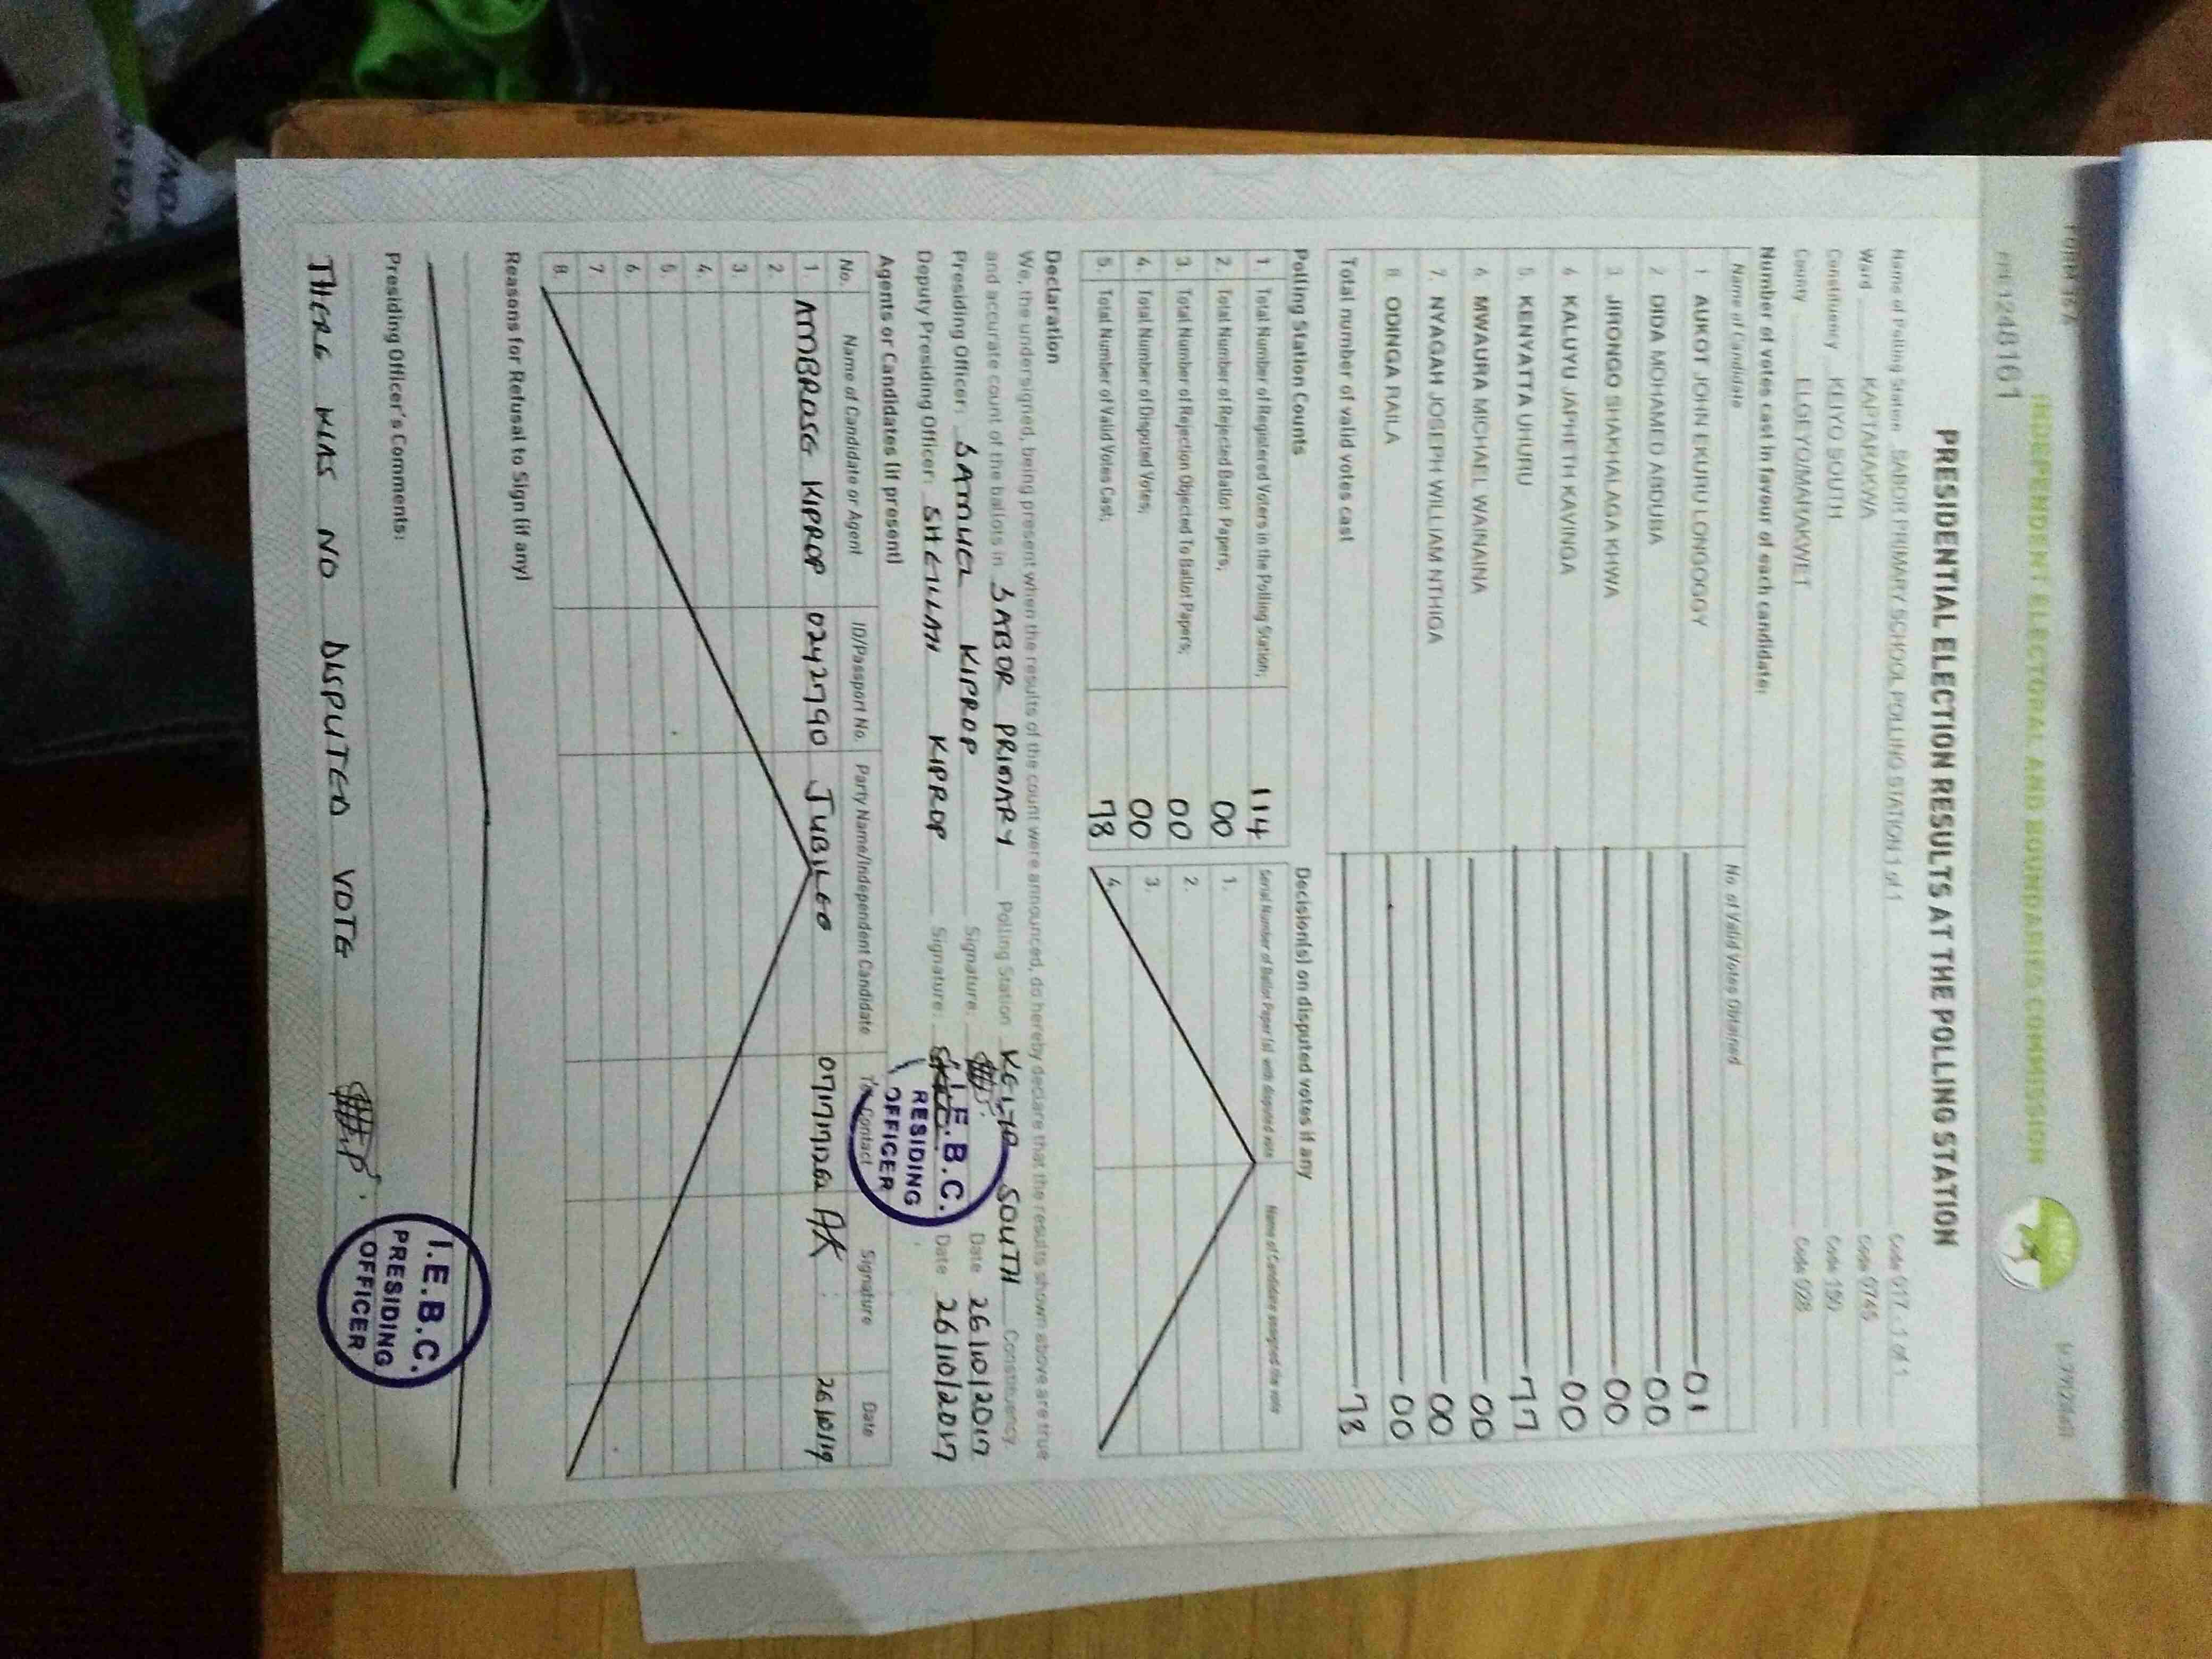 FORM 34A
INDEPENDENT ELECTORAL AND BOUNDARIES COMMISSION
1248161
PRESIDENTIAL ELECTION RESULTS AT THE POLLING STATION
Name of Polling Station SABOR PRIMARY SCHOOL POLLING STATION 1 of 1 Code 017 - 1 of 1
Ward KAPTARAKWA Code 0745
Constituency KEIYO SOUTH Code 150
County ELGEYO/MARAKWET Code 028
Number of votes cast in favour of each candidate:
Name of Candidate No. of Valid Votes Obtained
1 AUKOT JOHN EKURU LONGOGGY 01
2 DIDA MOHAMED ABDUBA 00
3 JIRONGO SHAKHALAGA KHWA 00
4 KALUYU JAPHETH KAVINGA 00
5. KENYATTA UHURU 77
6 MWAURA MICHAEL WAINAINA 00
7. NYAGAH JOSEPH WILLIAM NTHIGA 00
8 ODINGA RAILA 00
Total number of valid votes cast 78
Polling Station Counts
1. Total Number of Registered Voters in the Polling Station; 114
2. Total Number of Rejected Ballot Papers; 00
3. Total Number of Rejection Objected To Ballot Papers; 00
4. Total Number of Disputed Votes; 00
5. Total Number of Valid Votes Cast; 78
Decision(s) on disputed votes if any
Serial Number of Ballot Paper (s) with disputed vote Name of Candidate assigned the vote
1.
2.
3.
4.
Declaration
We, the undersigned, being present when the results of the count were announced, do hereby declare that the results shown above are true
and accurate count of the ballots in SABOR PRIMARY Polling Station KEIYO SOUTH Constituency.
Presiding Officer: SAMUEL KIPROP Signature: Date 26/10/2017
Deputy Presiding Officer: SHEILLAH KIPROP Signature: Date 26/10/2017
I.E.B.C.
RESIDING
OFFICER
Agents or Candidates (if present)
No. Name of Candidate or Agent ID/Passport No. Party Name/Independent Candidate Contact Signature Date
1. AMBROSE KIPROP 02427790 JUBILEE AK
2.
3.
4.
5.
6.
7.
8.
Reasons for Refusal to Sign (if any)
Presiding Officer's Comments:
THERE WAS NO DISPUTED VOTE
I.E.B.C.
PRESIDING
OFFICER